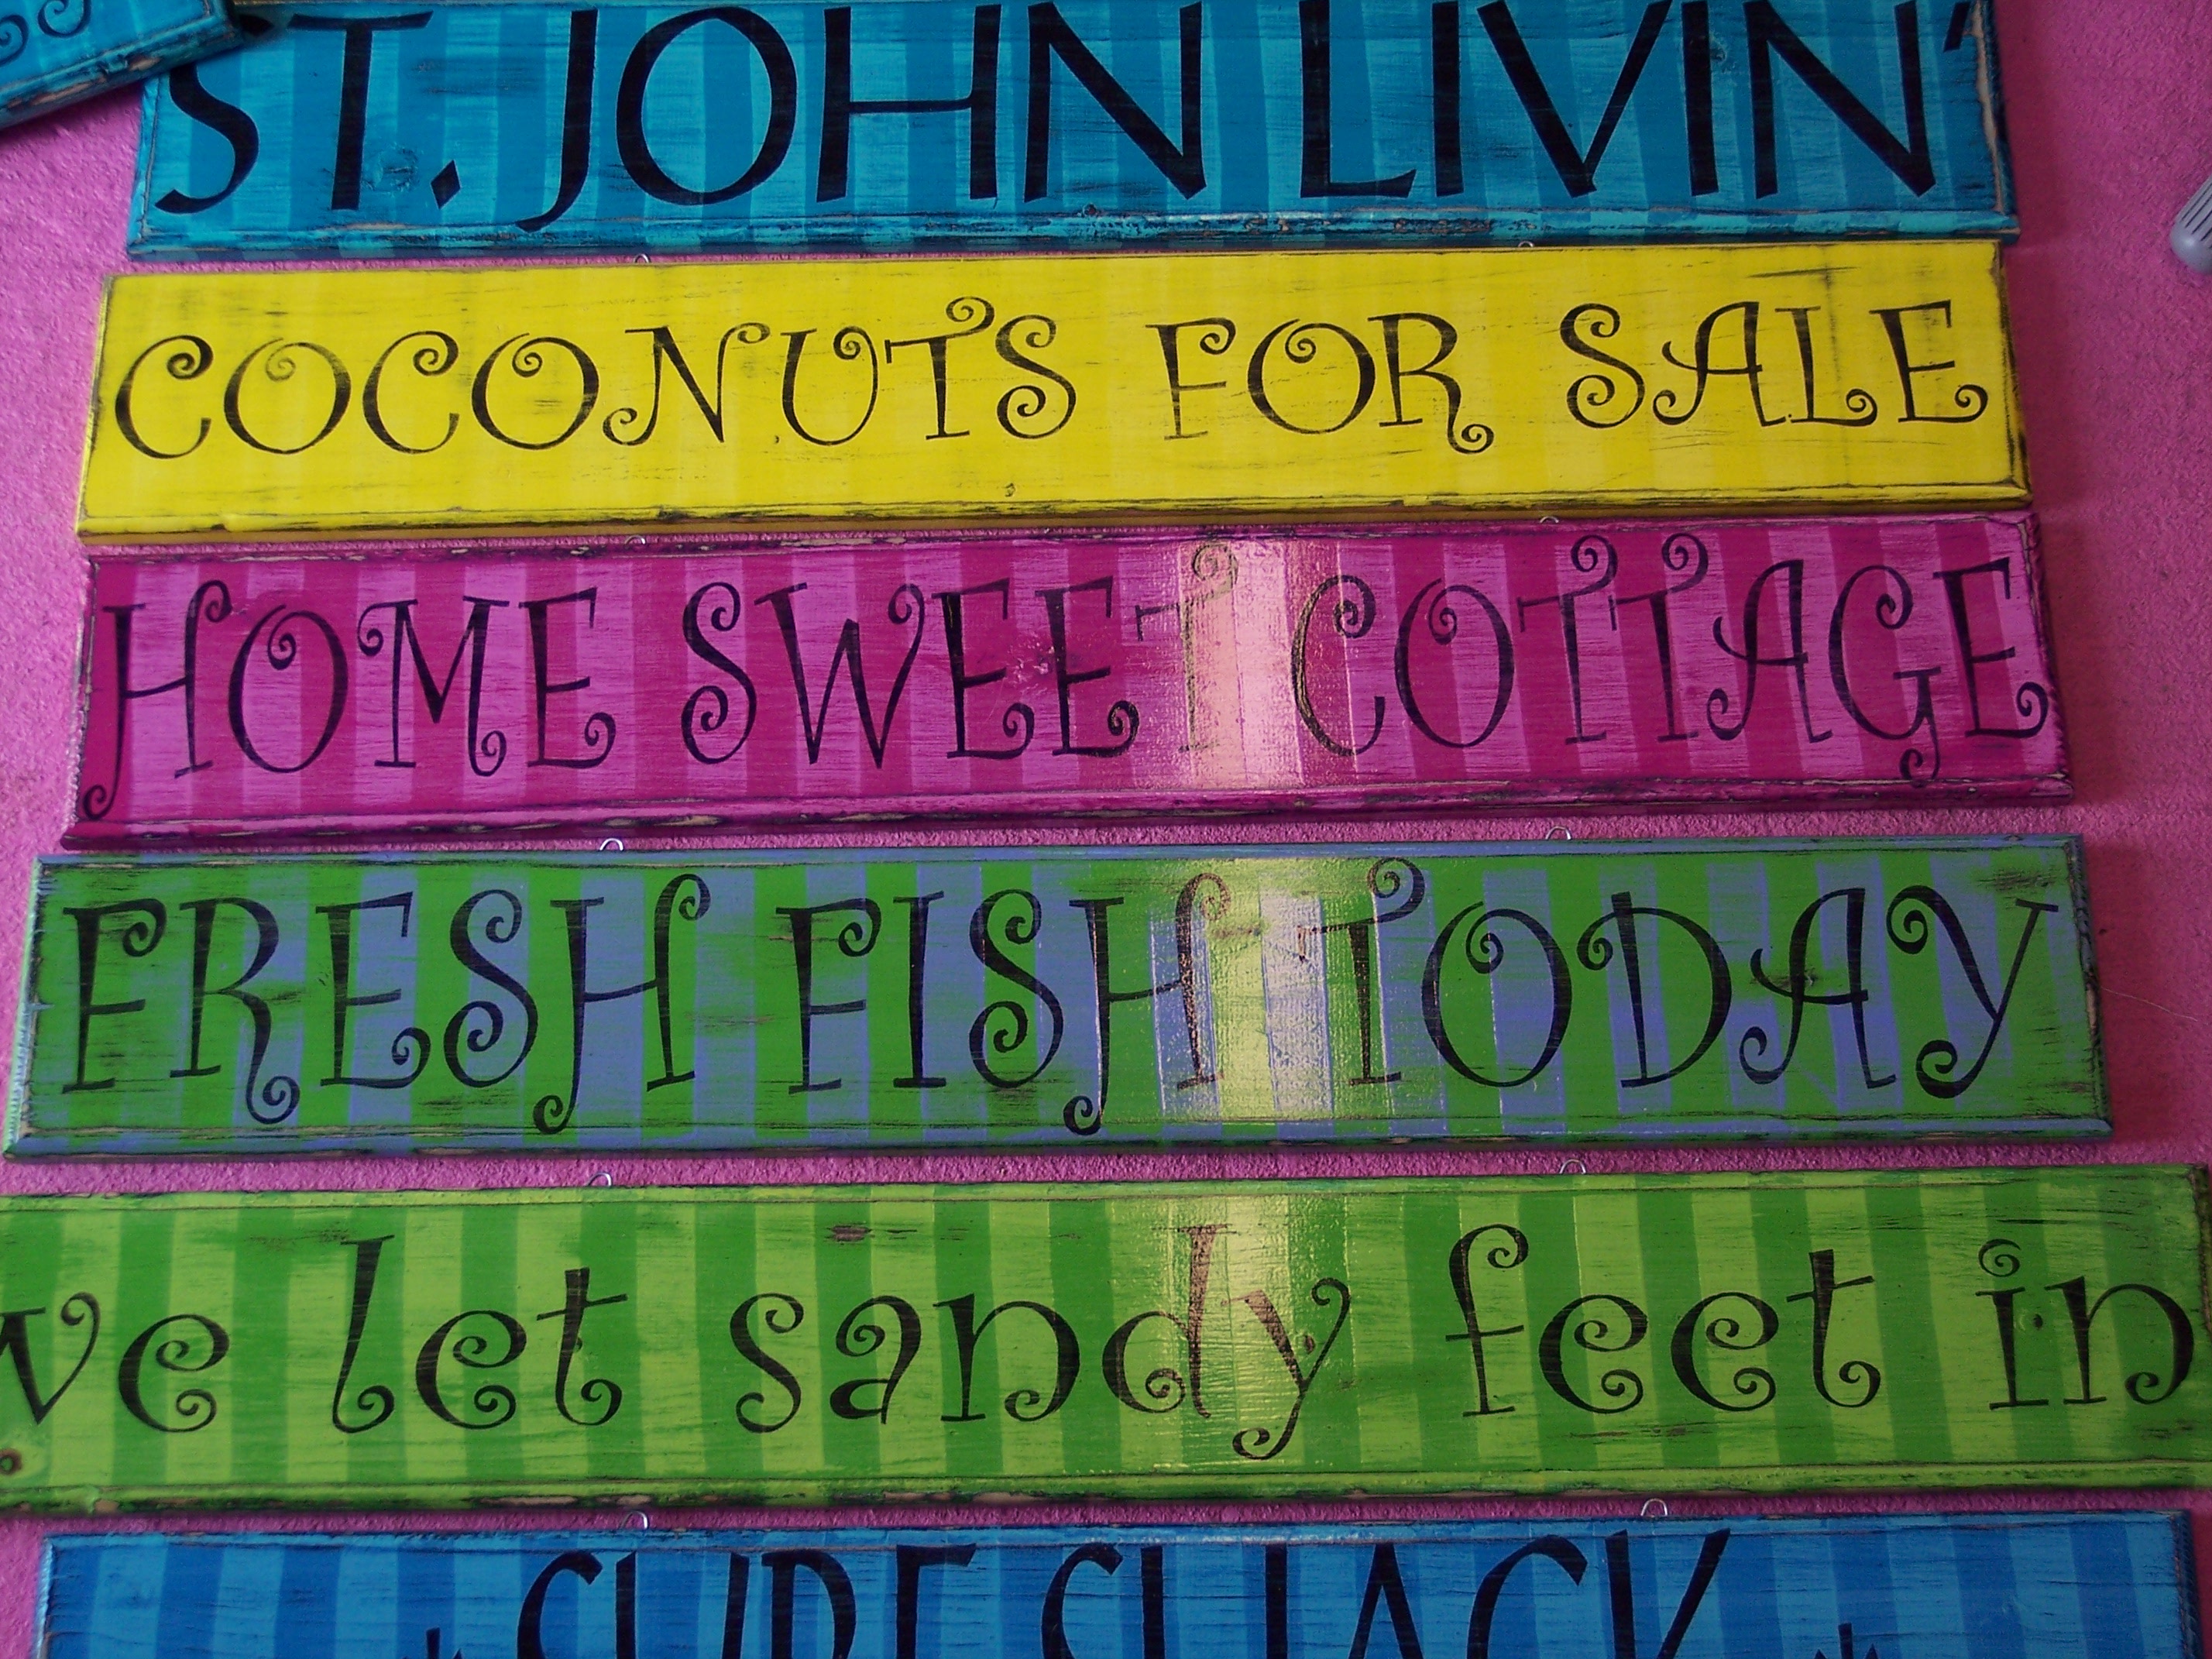 ST. JOHN LIVIN'
COCONUTS FOR SALE
HOME SWEET COTTAGE
FRESH FISH TODAY
we let sandy feet in
SURF SHACK